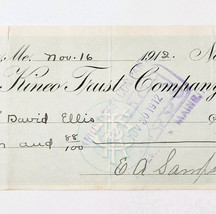 Me. Nov. 16 1912 No
Kineo Trust Company
David Ellis
and 88/100
E A Samps